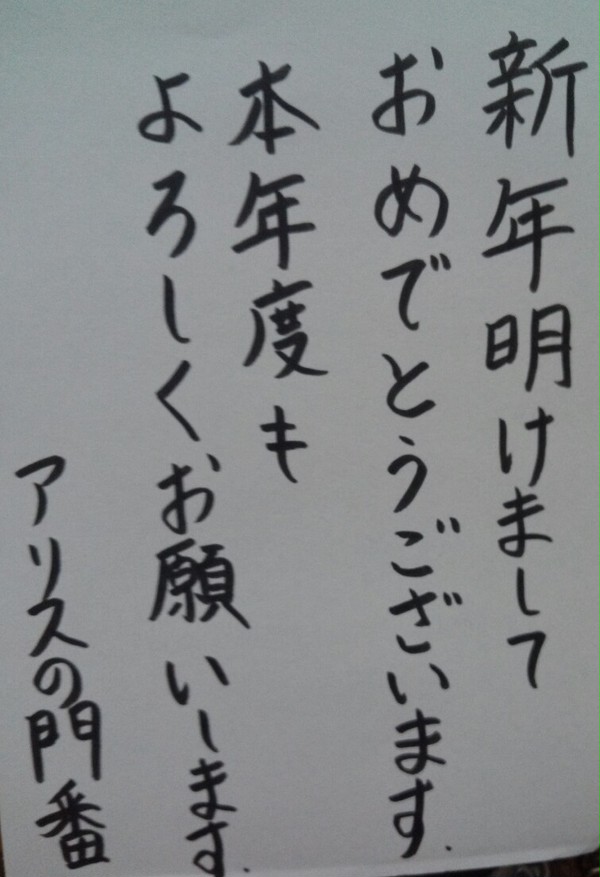 新年明けまして
おめでとうございます.
本年度も
よろしくお願いします.
アリスの門番